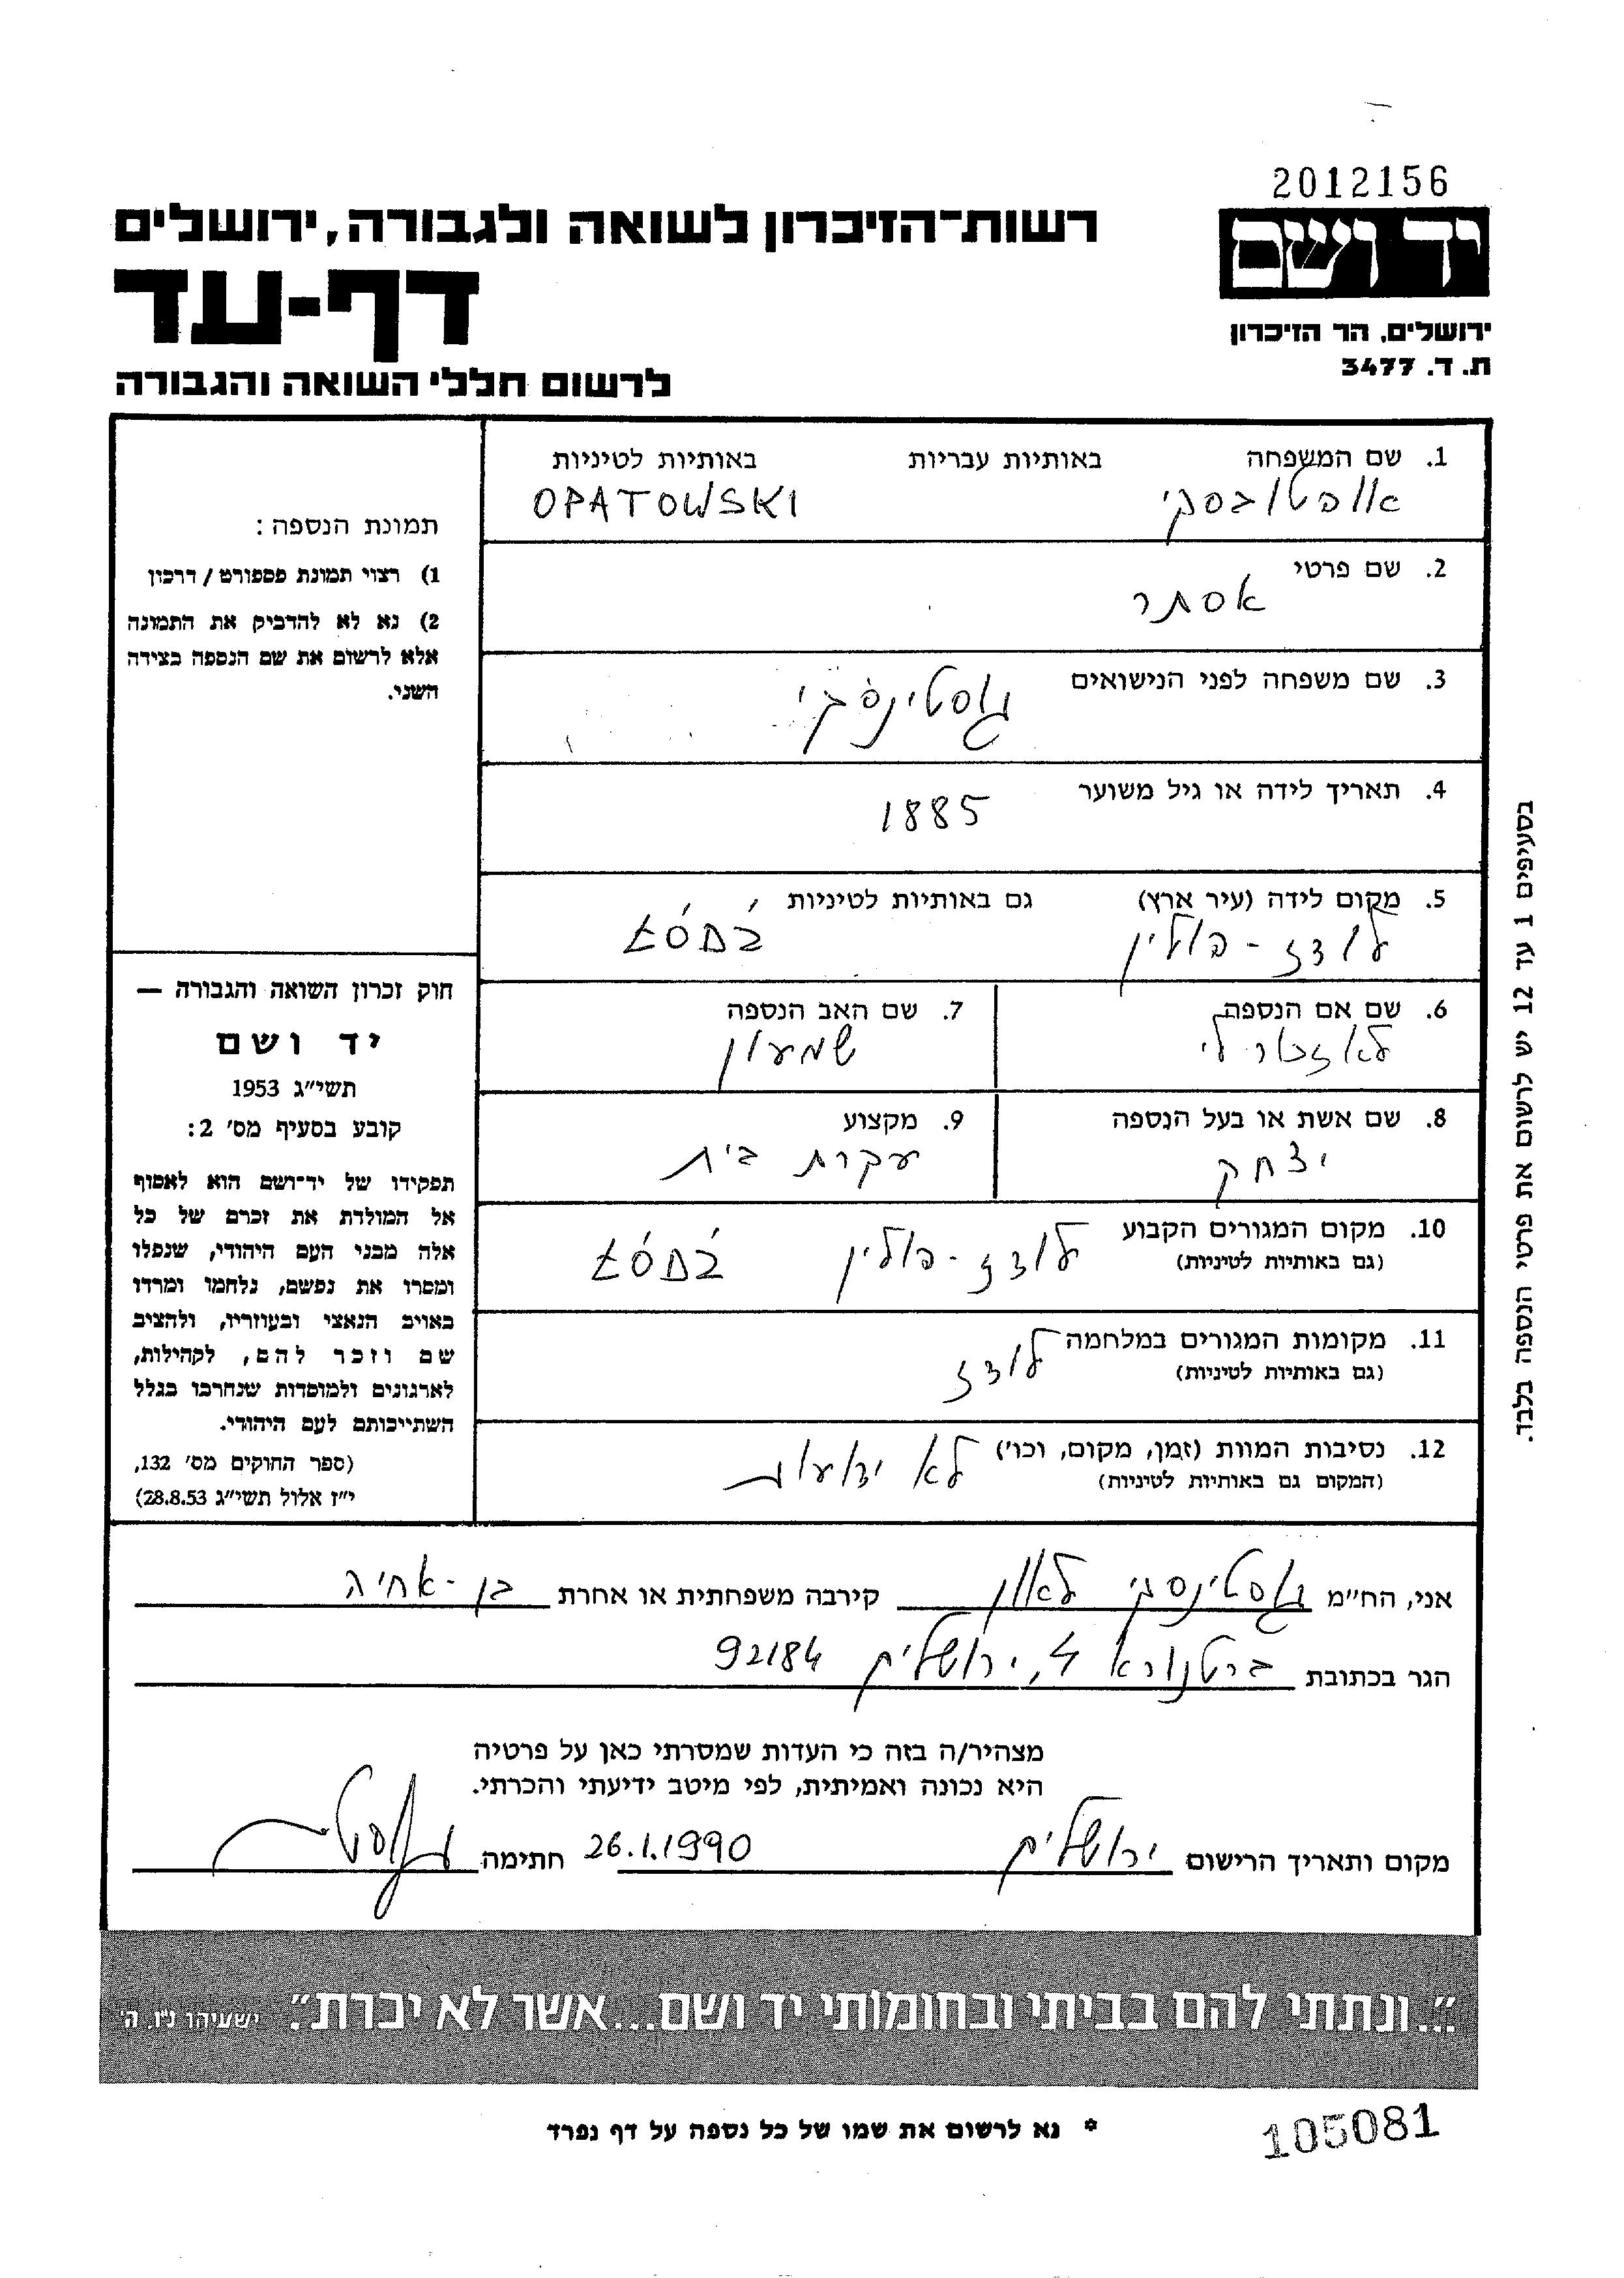 2012156
יד ושם
ירושלים, הר הזיכרון
ת. ד. 3477
רשות־הזיכרון לשואה ולגבורה, ירושלים
דף-עד
לרשום חללי השואה והגבורה
1. שם המשפחה באותיות עבריות באותיות לטיניות
אופטובסקי OPATOWSKI
2. שם פרטי
אסתר
3. שם משפחה לפני הנישואים
גוסטינסקי
4. תאריך לידה או גיל משוער
1885
5. מקום לידה (עיר ארץ) גם באותיות לטיניות
לודז - פולין ŁÓDŹ
6. שם אם הנספה
7. שם האב הנספה
שמעון
8. שם אשת או בעל הנספה
יצחק
9. מקצוע
עקרת בית
10. מקום המגורים הקבוע
(גם באותיות לטיניות)
לודז - פולין ŁÓDŹ
11. מקומות המגורים במלחמה
(גם באותיות לטיניות)
לודז
12. נסיבות המוות (זמן, מקום, וכו')
(המקום גם באותיות לטיניות)
לא ידועות
תמונת הנספה:
1) רצוי תמונת פספורט / דרכון
2) נא לא להדביק את התמונה
אלא לרשום את שם הנספה בצידה
השני.
חוק זכרון השואה והגבורה —
יד ושם
תשי״ג 1953
קובע בסעיף מס' 2:
תפקידו של יד־ושם הוא לאסוף
אל המולדת את זכרם של כל
אלה מבני העם היהודי, שנפלו
ומסרו את נפשם, נלחמו ומרדו
באויב הנאצי ובעוזריו, ולהציב
שם וזכר להם, לקהילות,
לארגונים ולמוסדות שנחרבו בגלל
השתייכותם לעם היהודי.
(ספר החוקים מס' 132,
י״ז אלול תשי״ג 28.8.53)
בסעיפים 1 עד 12 יש לרשום את פרטי הנספה בלבד.
אני, הח״מ גוסטינסקי לאון קירבה משפחתית או אחרת בן - אחיה
הגר בכתובת ברטנורא 4, ירושלים 92184
מצהיר/ה בזה כי העדות שמסרתי כאן על פרטיה
היא נכונה ואמיתית, לפי מיטב ידיעתי והכרתי.
מקום ותאריך הרישום ירושלים 26.1.1990 חתימה
"...ונתתי להם בביתי ובחומותי יד ושם...אשר לא יכרת". ישעיהו נ"ו, ה'
* נא לרשום את שמו של כל נספה על דף נפרד
105081